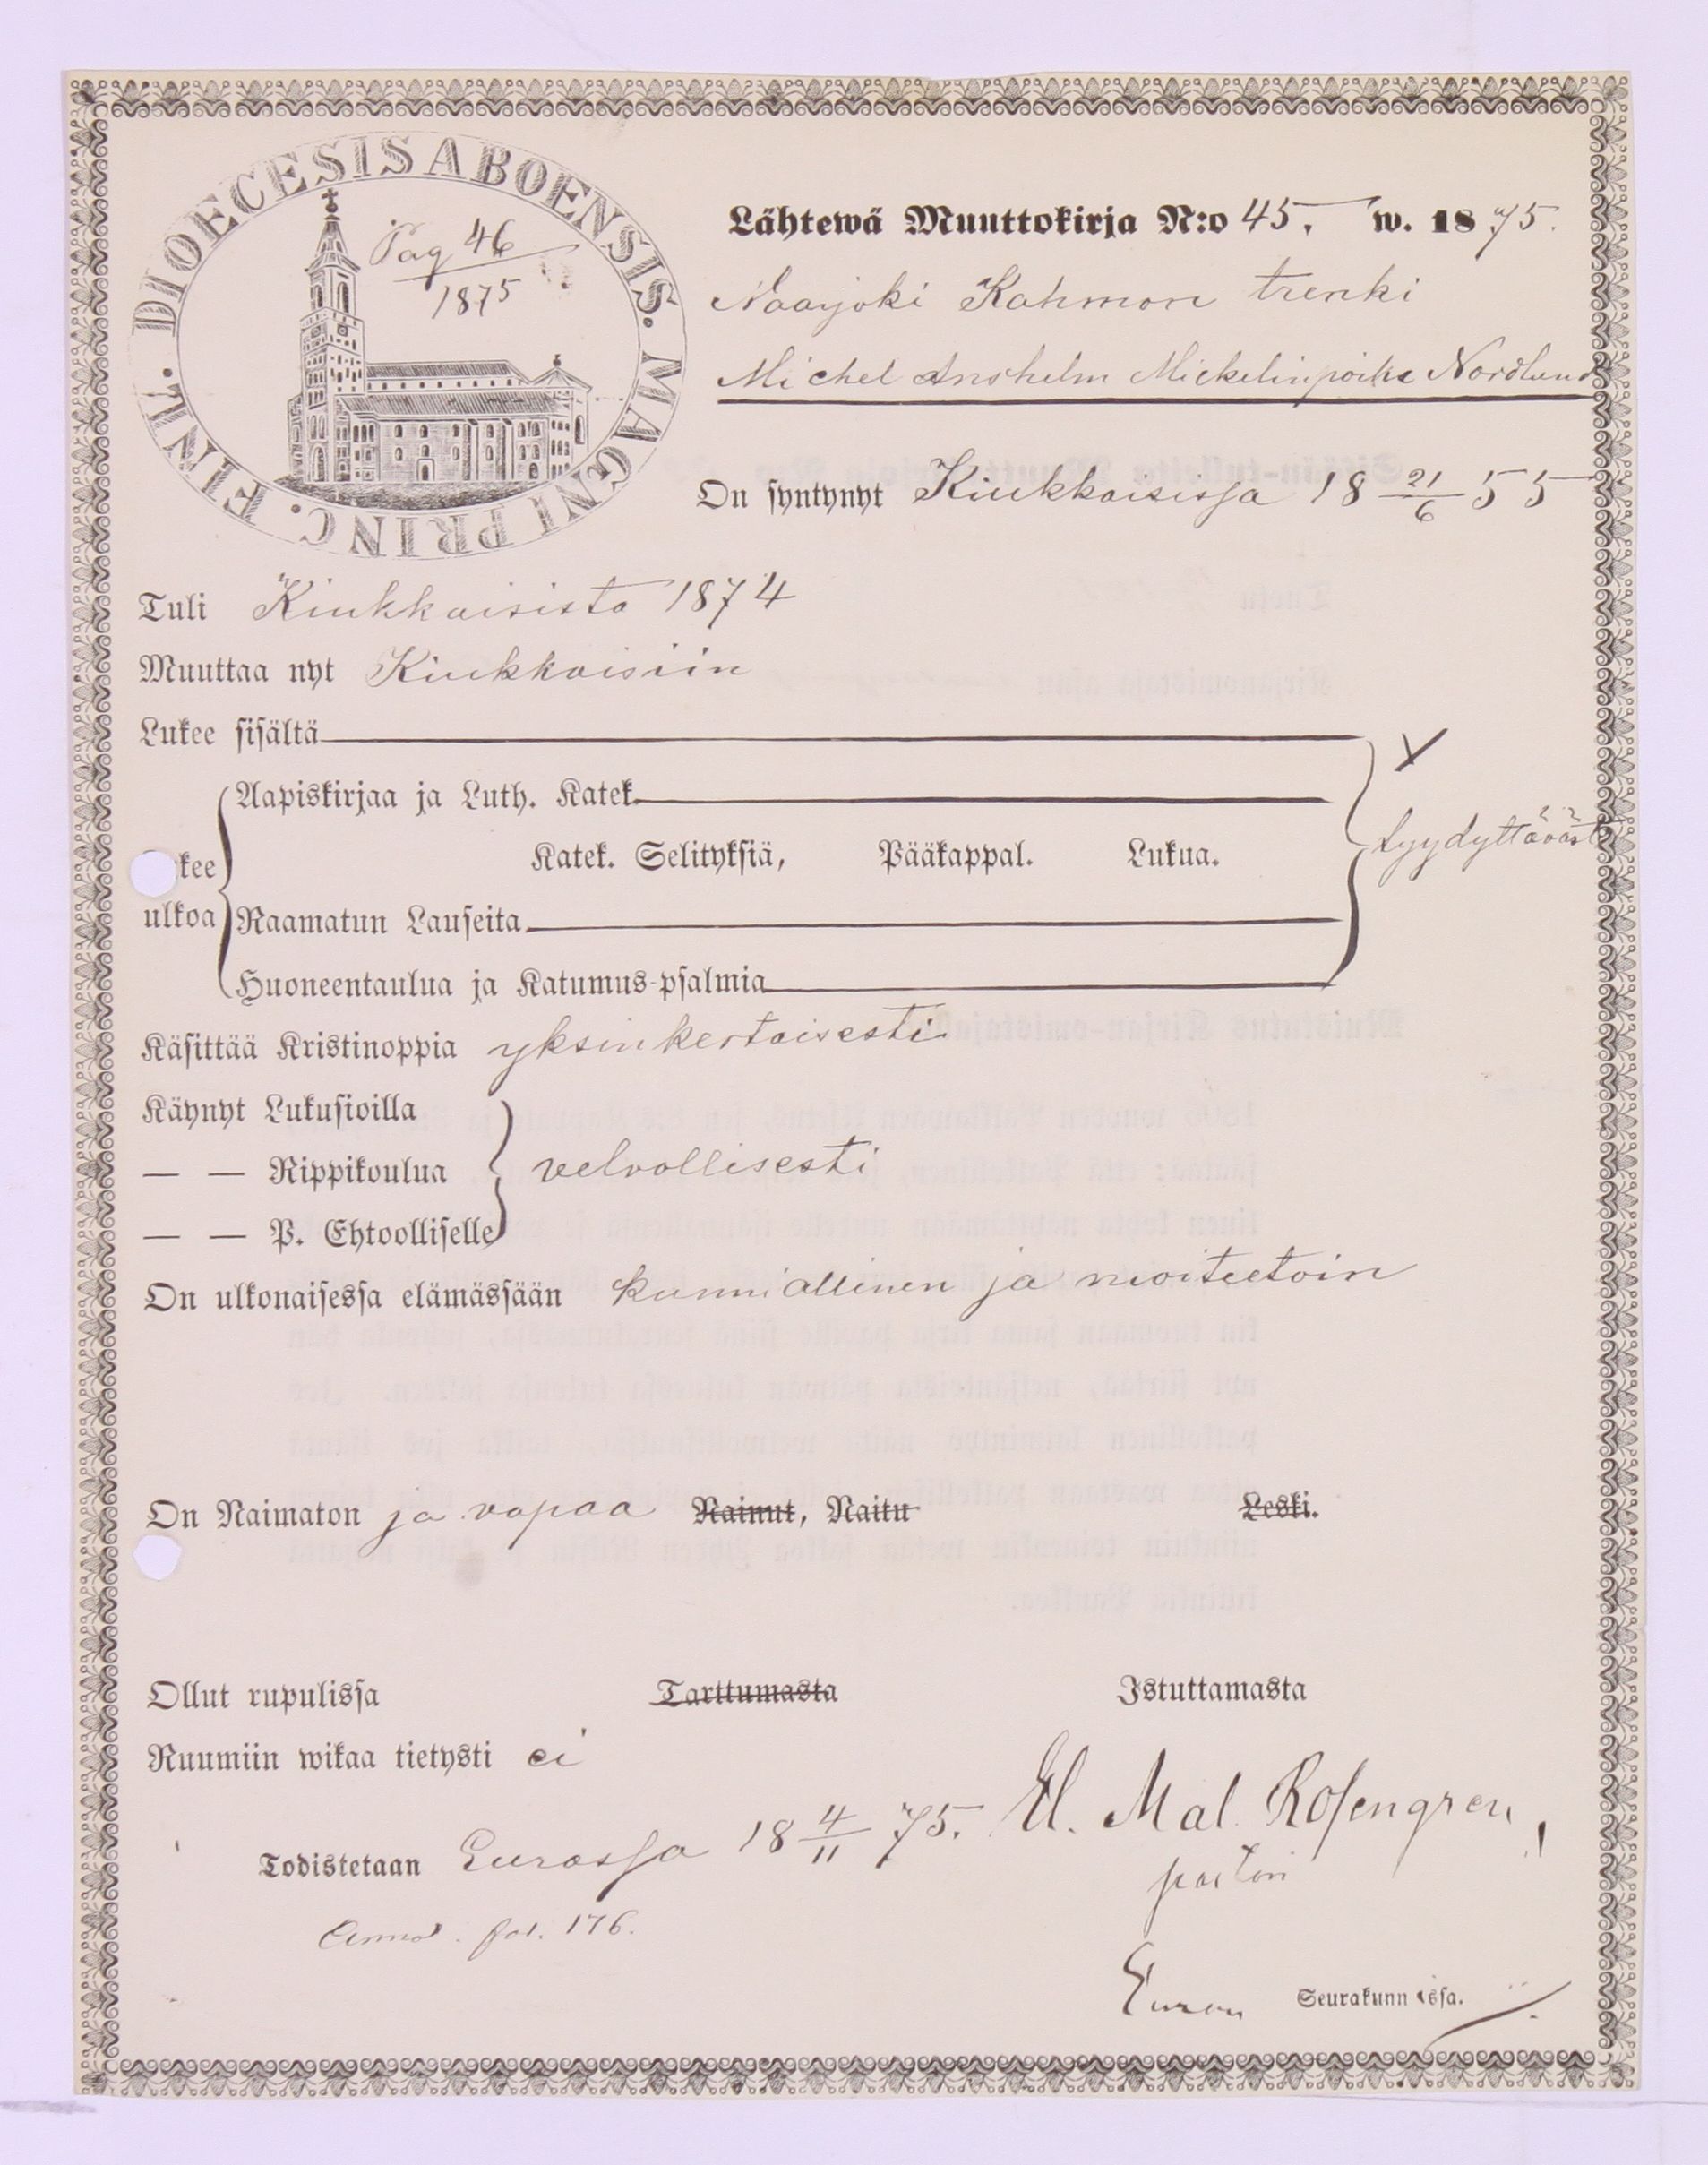 DIOECESIS ABOENSIS. MAGNI PRINC. FINL.
Pag 46
1875
Lähtewä Muuttokirja N:o 45. w. 1875.
Naarjoki Kahmon trenki
Michel Anshelm Mickelinpoika Nordlund
On syntynyt Kiukkaisissa 18 21/6 55
Tuli Kiukkaisista 1874
Muuttaa nyt Kiukkaisiin
Lukee sisältä
Aapiskirjaa ja Luth. Katek.
Katek. Selityksiä, Pääkappal. Lukua.
tyydyttäväst
kee
ulkoa
Raamatun Lauseita
Huoneentaulua ja Katumus-psalmia
Käsittää Kristinoppia yksinkertaisesti
Käynyt Lukusioilla
— — Rippikoulua velvollisesti
— — P. Ehtoolliselle
On ulkonaisessa elämässään kunniallinen ja moiteetoin
On Naimaton ja vapaa Nainut, Naitu Leski.
Ollut rupulissa Tarttumasta Istuttamasta
Ruumiin wikaa tietysti ei
Todistetaan Eurassa 18 4/11 75. El. Mal. Rosengren,
pastori
fol. 176.
Euran Seurakunnassa.